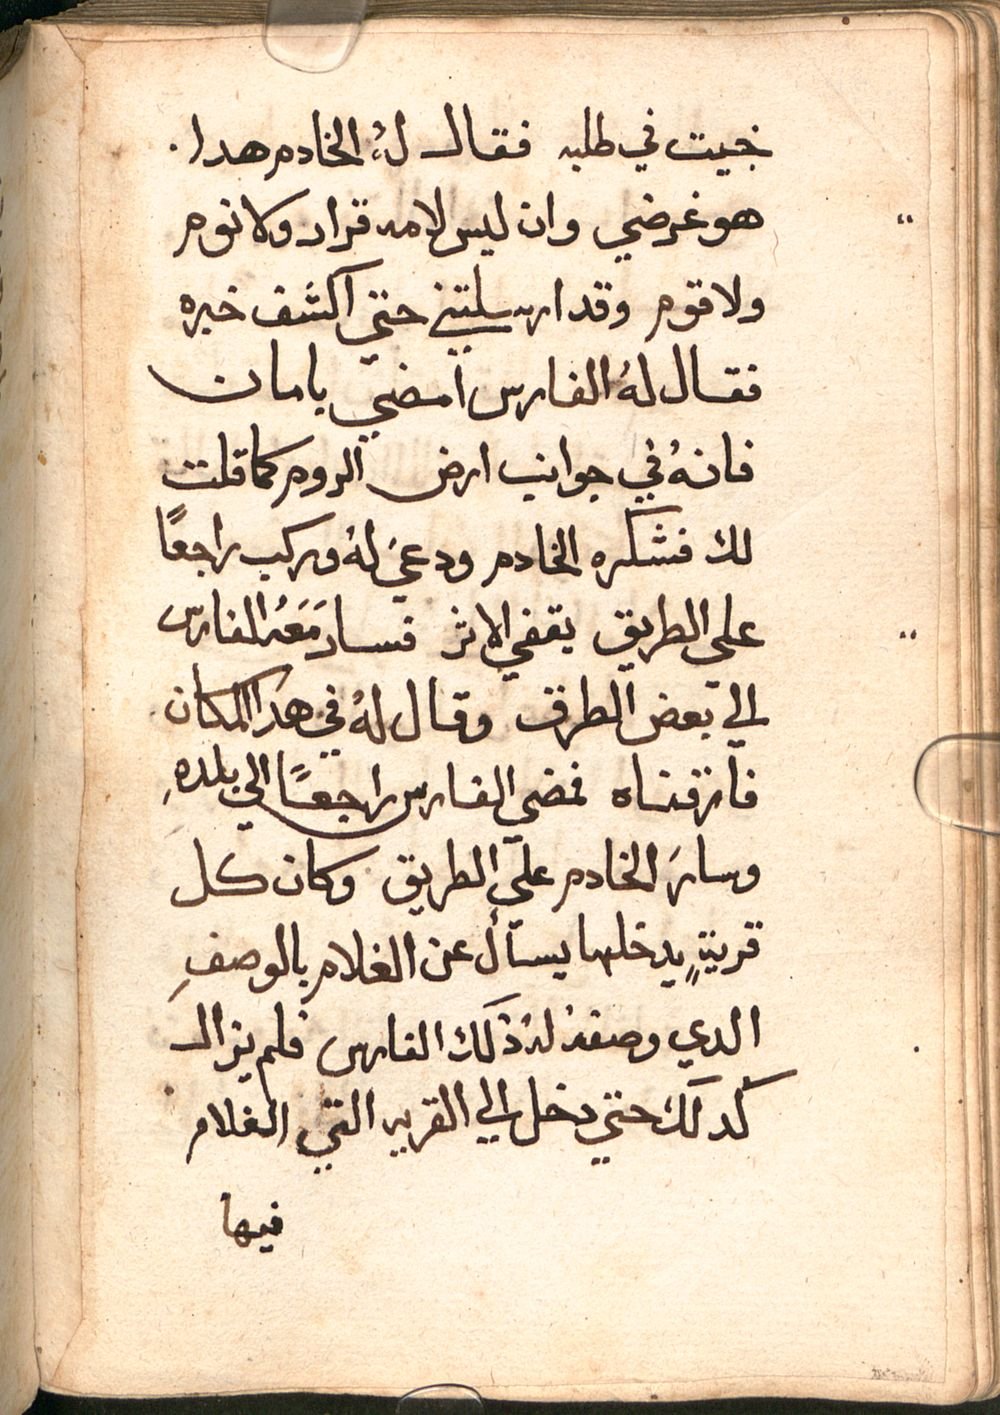 جيت في طلبه فقال لهُ الخادم هدا .
هو غرضي وان ليس لامه قرار ولا نوم
ولا قوم وقد ارسلتني حتي اكشف خبره
فقال لهُ الفارس امضي بامان
فانهُ في جوانب ارض الروم كما قلت
لك فشكره الخادم ودعي لهُ وركب راجعًا
علي الطريق يقفي الاثر فسار مَعَهُ الفارس
الي بعض الطرق وقال لهُ في هدا المكان
فارقناه فمضي الفارس راجعًا الي بلدهِ
وسارَ الخادم علي الطريق وكان كل
قريةٍ يدخلها يسأل عن الغلام بالوصفِ
الدي وصفهُ لهُ ذلك الفارس فلم يزال
كدلك حتي دخل الي القريه التي الغلام
فيها